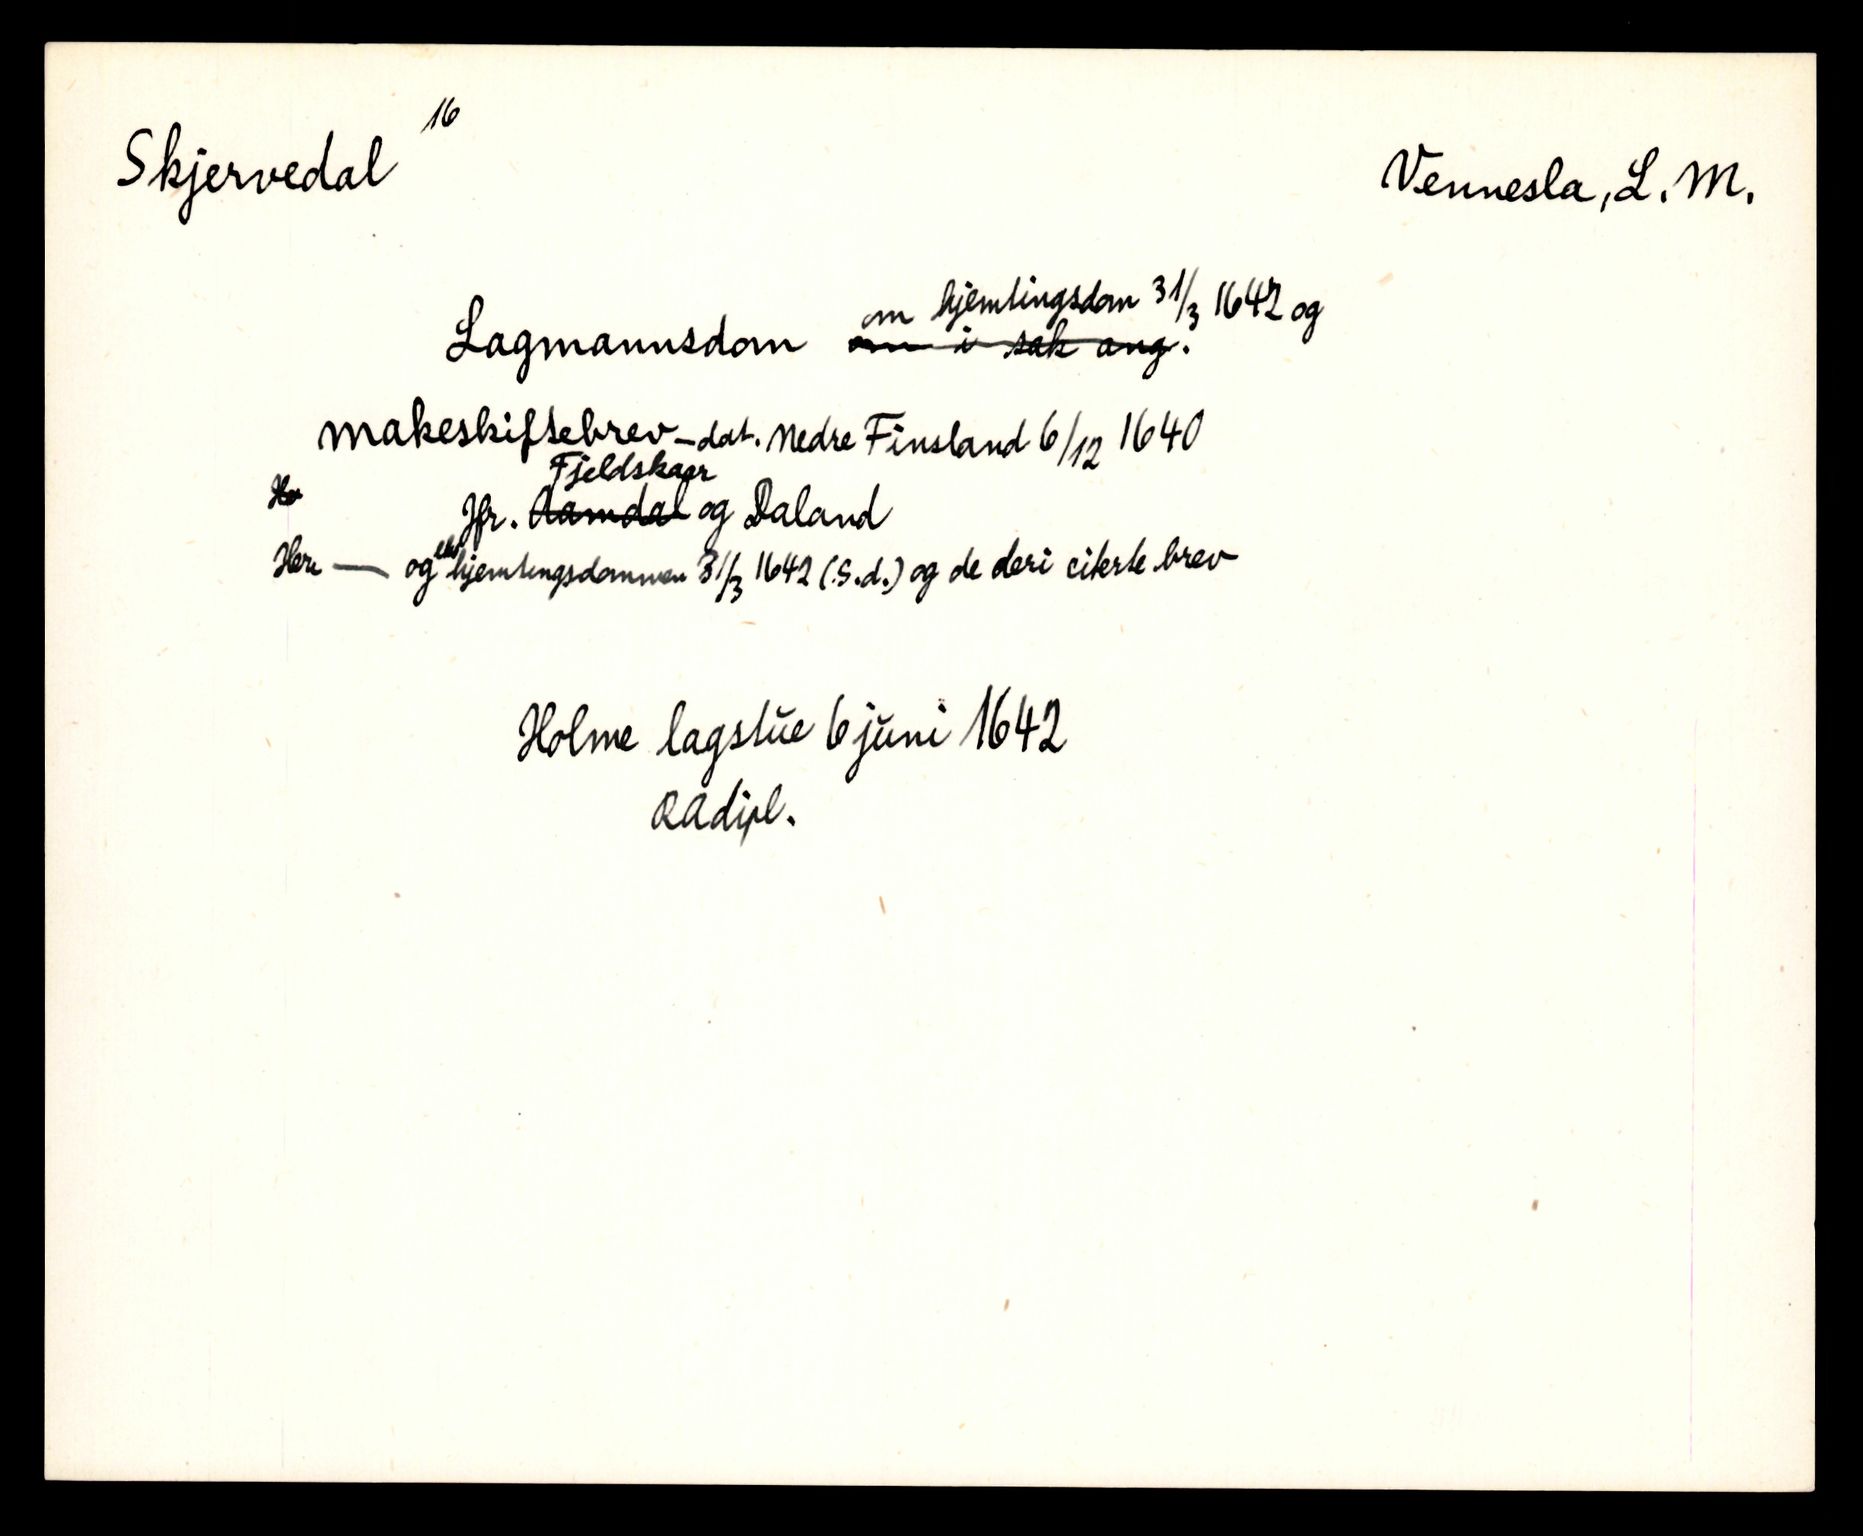 Skjervedal 16
Vennesla, L. M.
om hjemtingsdom 31/3 1642 og
Lagmannsdom om i sak ang.
makeskiftebrev - dat. Nedre Finsland 6/12 1640
Fjeldskaar
Jfr. Aamdal og Daland
Her — og hjemtingsdommen 31/3 1642 (s.d.) og de deri citerte brev
Holme lagstŭe 6 jŭni 1642
RAdipl.